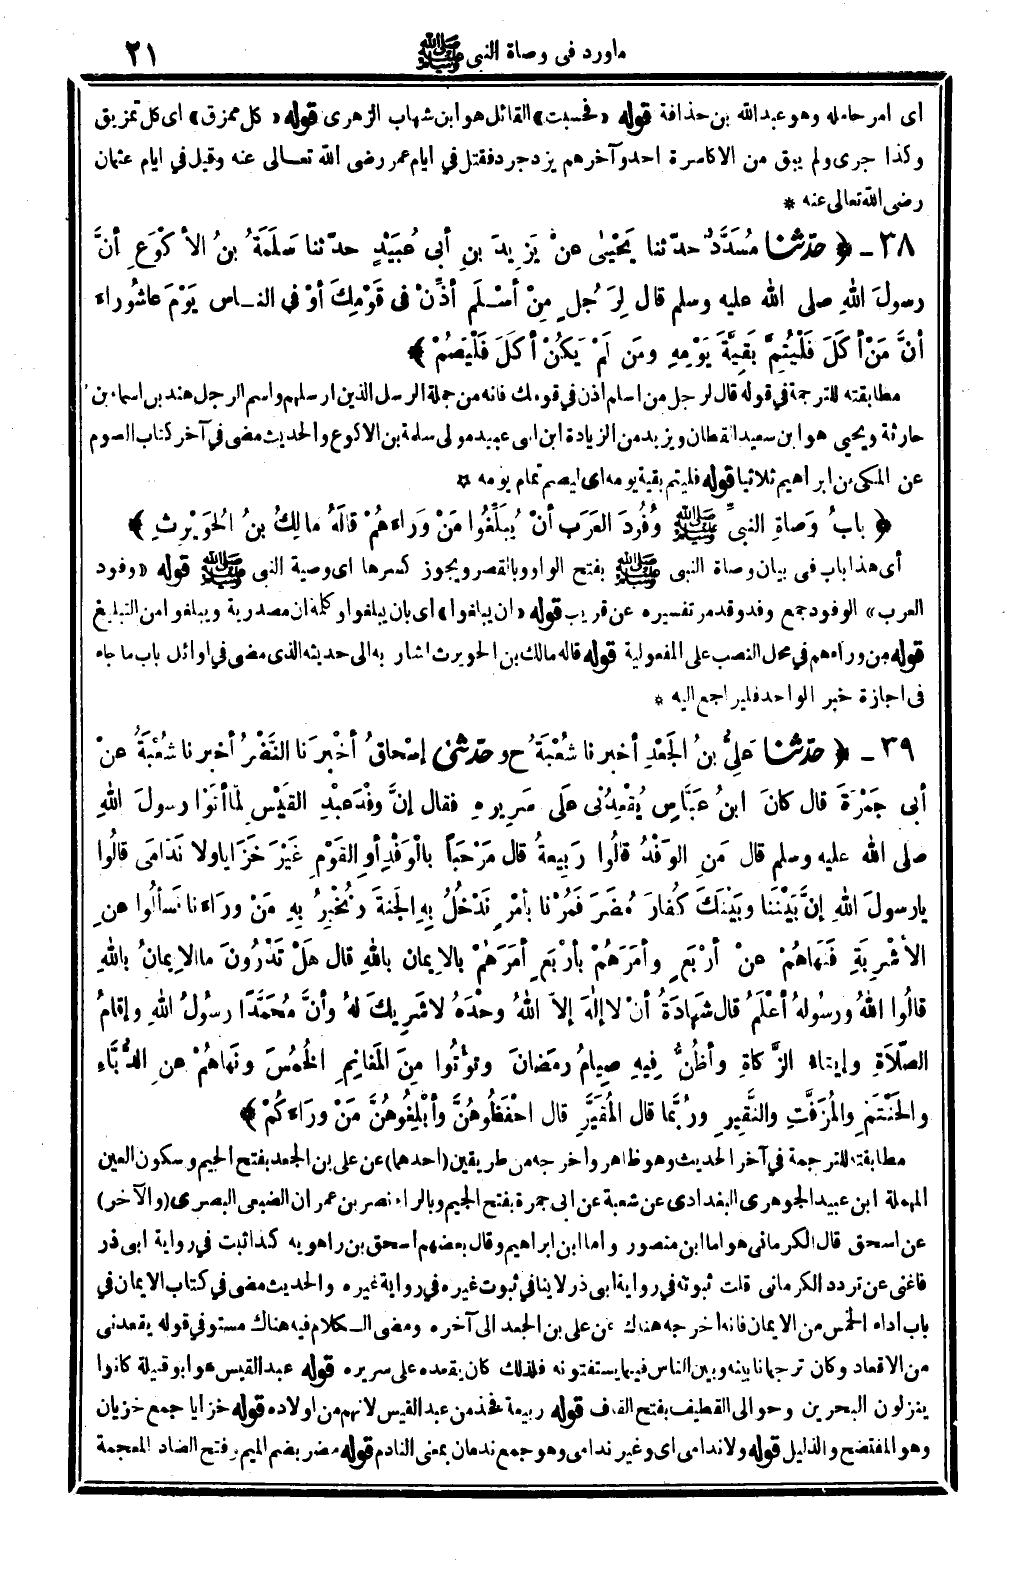 ماورد فى وصاة النبى ﷺ ٢١
اى امر حامله وهو عبد الله بن حذافة قوله «فحسبت» القائل هو ابن شهاب الزهرى قوله «كل ممزق» اى كل تمزيق
وكذا جرى ولم يبق من الاكاسرة احد وآخرهم يزدجرد فقتل في ايام عمر رضى الله تعالى عنه وقيل في ايام عثمان
رضى الله تعالى عنه *
٣٨ - ﴿ حدّثنا مُسَدَّدٌ حدّثنا يَحْيىٰ عنْ يَزِيدَ بنِ أبى عُبَيْدٍ حدّثنا سَلَمَةُ بنُ الأكْوَعِ أنَّ
رسولَ اللهِ صلى الله عليه وسلم قال لِرَجُلٍ مِنْ أسْلَمَ أذِّنْ فى قَوْمِكَ أوْ فى النـاسِ يَوْمَ عاشُوراءَ
أنَّ مَنْ أكَلَ فَلْيُتِمَّ بَقِيَّةَ يَوْمِهِ ومَن لَمْ يَكُنْ أكَلَ فَلْيَصُمْ ﴾
مطابقته للترجمة في قوله قال لرجل من اسلم اذن في قومك فانه من جملة الرسل الذين ارسلهم واسم الرجل هند بن اسماء بن
حارثة ويحيى هو ابن سعيد القطان ويزيد من الزيادة ابن ابى عبيد مولى سلمة بن الاكوع والحديث مضى في آخر كتاب الصوم
عن المكى بن ابراهيم ثلاثيا قوله فليتم بقية يومه اى ليصم تمام يومه ✩
﴿ بابُ وَصاةِ النبىِّ ﷺ وُفُودَ العَرَبِ أنْ يُبَلِّغُوا مَنْ وَرَاءَهُمْ قالَهُ مالِكُ بنُ الحُوَيْرِثِ ﴾
أى هذا باب فى بيان وصاة النبى ﷺ بفتح الواو وبالقصر ويجوز كسرها اى وصية النبى ﷺ قوله «وفود
العرب» الوفود جمع وفد وقد مر تفسيره عن قريب قوله «ان يبلغوا» اى بان يبلغوا وكلمة ان مصدرية ويبلغوا من التبليغ
قوله من وراءهم في محل النصب على المفعولية قوله قاله مالك بن الحويرث اشار به الى حديثه الذى مضى في اوائل باب ما جاء
فى اجازة خبر الواحد فليراجع اليه *
٣٩ - ﴿ حدّثنا عَلِىُّ بنُ الجَعْدِ أخبرنا شُعْبَةُ ح وحدّثنى إسْحاقُ أخْبَرَنا النَّضْرُ أخبرنا شُعْبَةُ عنْ
أبى جَمْرَةَ قال كانَ ابنُ عبَّاسٍ يُقْعِدُنى عَلَى سَرِيرِهِ فقال إنَّ وَفْدَ عبْدِ القَيْسِ لمَّا أتَوْا رسولَ اللهِ
صلى الله عليه وسلم قال مَنِ الوَفْدُ قالُوا رَبِيعةُ قال مَرْحَباً بالْوَفْدِ أوِ القَوْمِ غَيْرَ خَزَايا ولا نَدَامَى قالُوا
يارسولَ اللهِ إنَّ بَيْنَنا وبَيْنَكَ كُفَّارَ مُضَرَ فَمُرْنا بأمْرٍ نَدْخُلُ بِهِ الجَنةَ ونُخْبِرُ بِهِ مَنْ ورَاءَنا فَسألُوا عنِ
الأشْرِبَةِ فَنَهَاهُمْ عنْ أرْبَعٍ وأمَرَهُمْ بأرْبَعٍ أمَرَهُمْ بالإيمانِ باللهِ قال هَلْ تَدْرُونَ ما الإيمانُ باللهِ
قالُوا اللهُ ورسُولهُ أعْلَمُ قال شَهادَةُ أنْ لا إلٰهَ إلاَّ اللهُ وحْدَهُ لا شَرِيكَ لهُ وأنَّ مُحَمَّدًا رسولُ اللهِ وإقامُ
الصَّلاَةِ وإيتاءُ الزَّكاةِ وأظُنُّ فِيهِ صِيامُ رمَضانَ وتُوْتُوا مِنَ المَغانِمِ الخُمُسَ ونَهاهُمْ عنِ الدُّبَّاءِ
والحَنْتَمِ والمُزَفَّتِ والنَّقِيرِ ورُبَّما قال المُقَيَّرِ قال احْفَظُوهُنَّ وأبْلِغُوهُنَّ مَنْ وراءَكُمْ ﴾
مطابقته للترجمة في آخر الحديث وهو ظاهر واخرجه من طريقين (احدهما) عن على بن الجعد بفتح الجيم وسكون العين
المهملة ابن عبيد الجوهرى البغدادى عن شعبة عن ابى جمرة بفتح الجيم وبالراء نصر بن عمران الضبعى البصرى (والآخر)
عن اسحق قال الكرمانى هو اما ابن منصور واما ابن ابراهيم وقال بعضهم اسحق بن راهويه كذا ثبت في رواية ابى ذر
فاغنى عن تردد الكرمانى قلت ثبوته في رواية ابى ذر لاينافى ثبوت غيره في رواية غيره والحديث مضى في كتاب الايمان في
باب اداء الخمس من الايمان فانه اخرجه هناك عن على بن الجعد الى آخره ومضى الـكلام فيه هناك مستوفى قوله يقعدنى
من الاقعاد وكان ترجمانا بينه وبين الناس فيما يستفتونه فلذلك كان يقعده على سريره قوله عبد القيس هو ابو قبيلة كانوا
ينزلون البحرين وحوالى القطيف بفتح القاف قوله ربيعة فخذ من عبد القيس لانهم من اولاده قوله خزايا جمع خزيان
وهو المفتضح والذليل قوله ولا ندامى اى وغير ندامى وهو جمع ندمان بمعنى النادم قوله مضر بضم الميم وفتح الضاد المعجمة